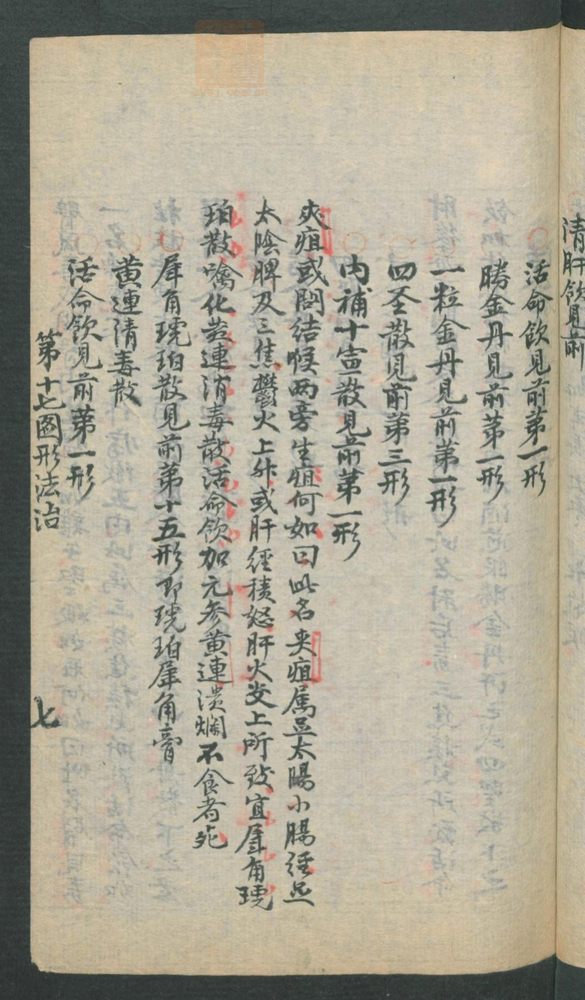 清肝飲見前
活命飲見前第一形
勝金丹見前第一形
一粒金丹見前第一形
四圣散見前第三形
内補十宣散見前第一形
夾疽或問結喉两旁生疽何如曰此名夾疽属足太陽小腸経足
太陰脾及三焦鬱火上升或肝経積怒肝火炎上所致宜犀角琥
珀散噙化黄連消毒散活命飲加元参黄連潰爛不食者死
犀角琥珀散見前第十五形即琥珀犀角膏
黄連清毒散
活命飲見前第一形
第十七圖形法治
七